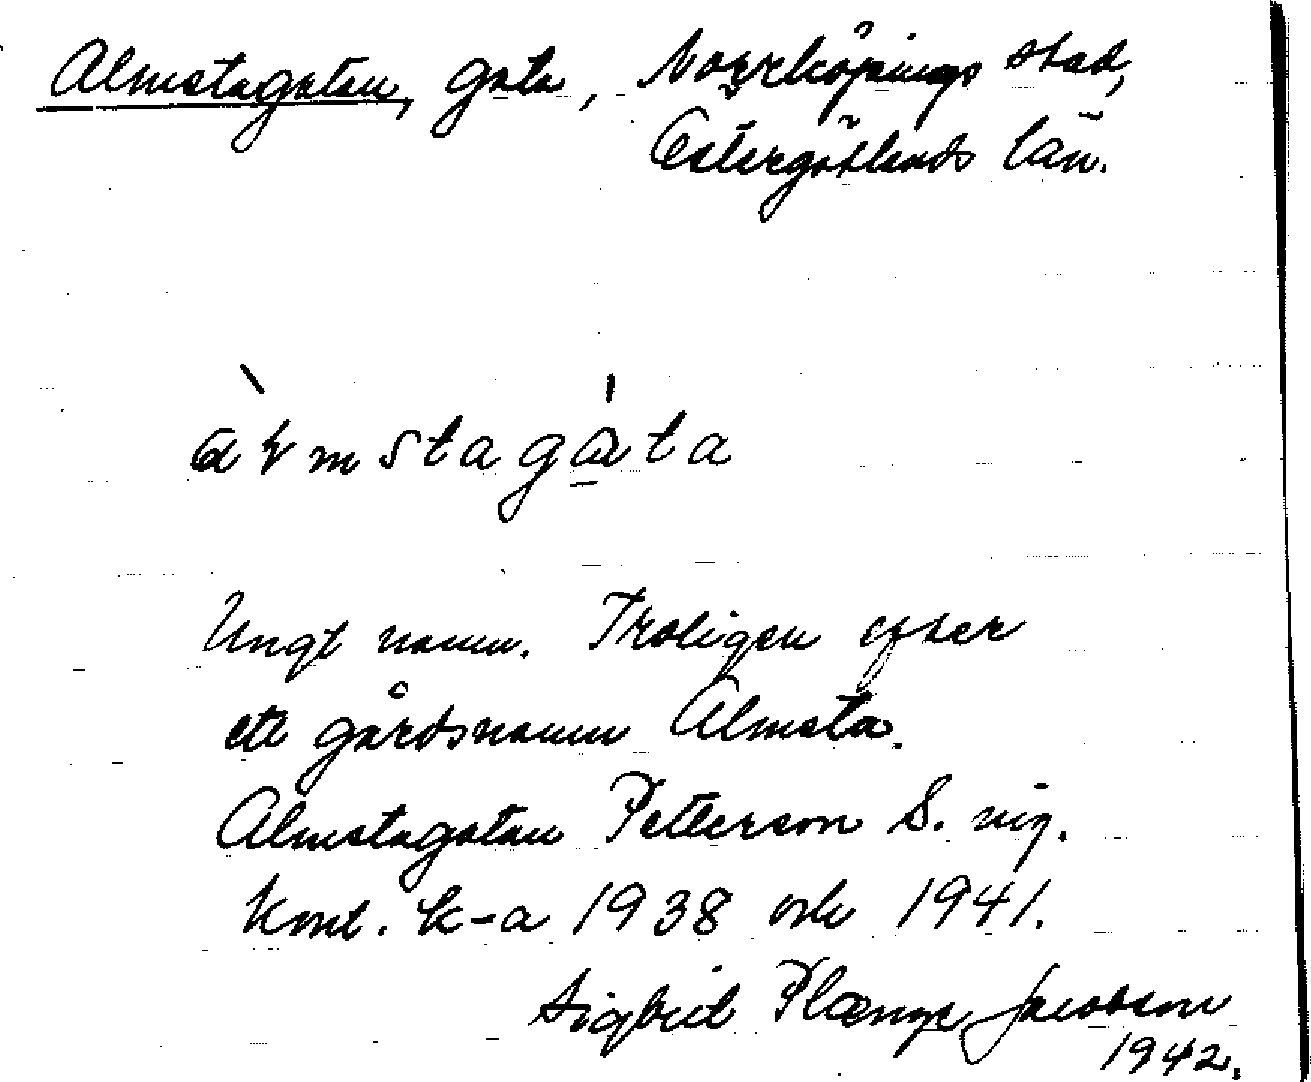 Almstagatan, gata, Norrköpings stad,
Östergötlands län.
Ungt namn. Troligen efter
ett gårdsnamn Almsta.
Almstagatan Petterson S.
1938 och 1941.
Sigbrit Plænge Jacobson
1942.